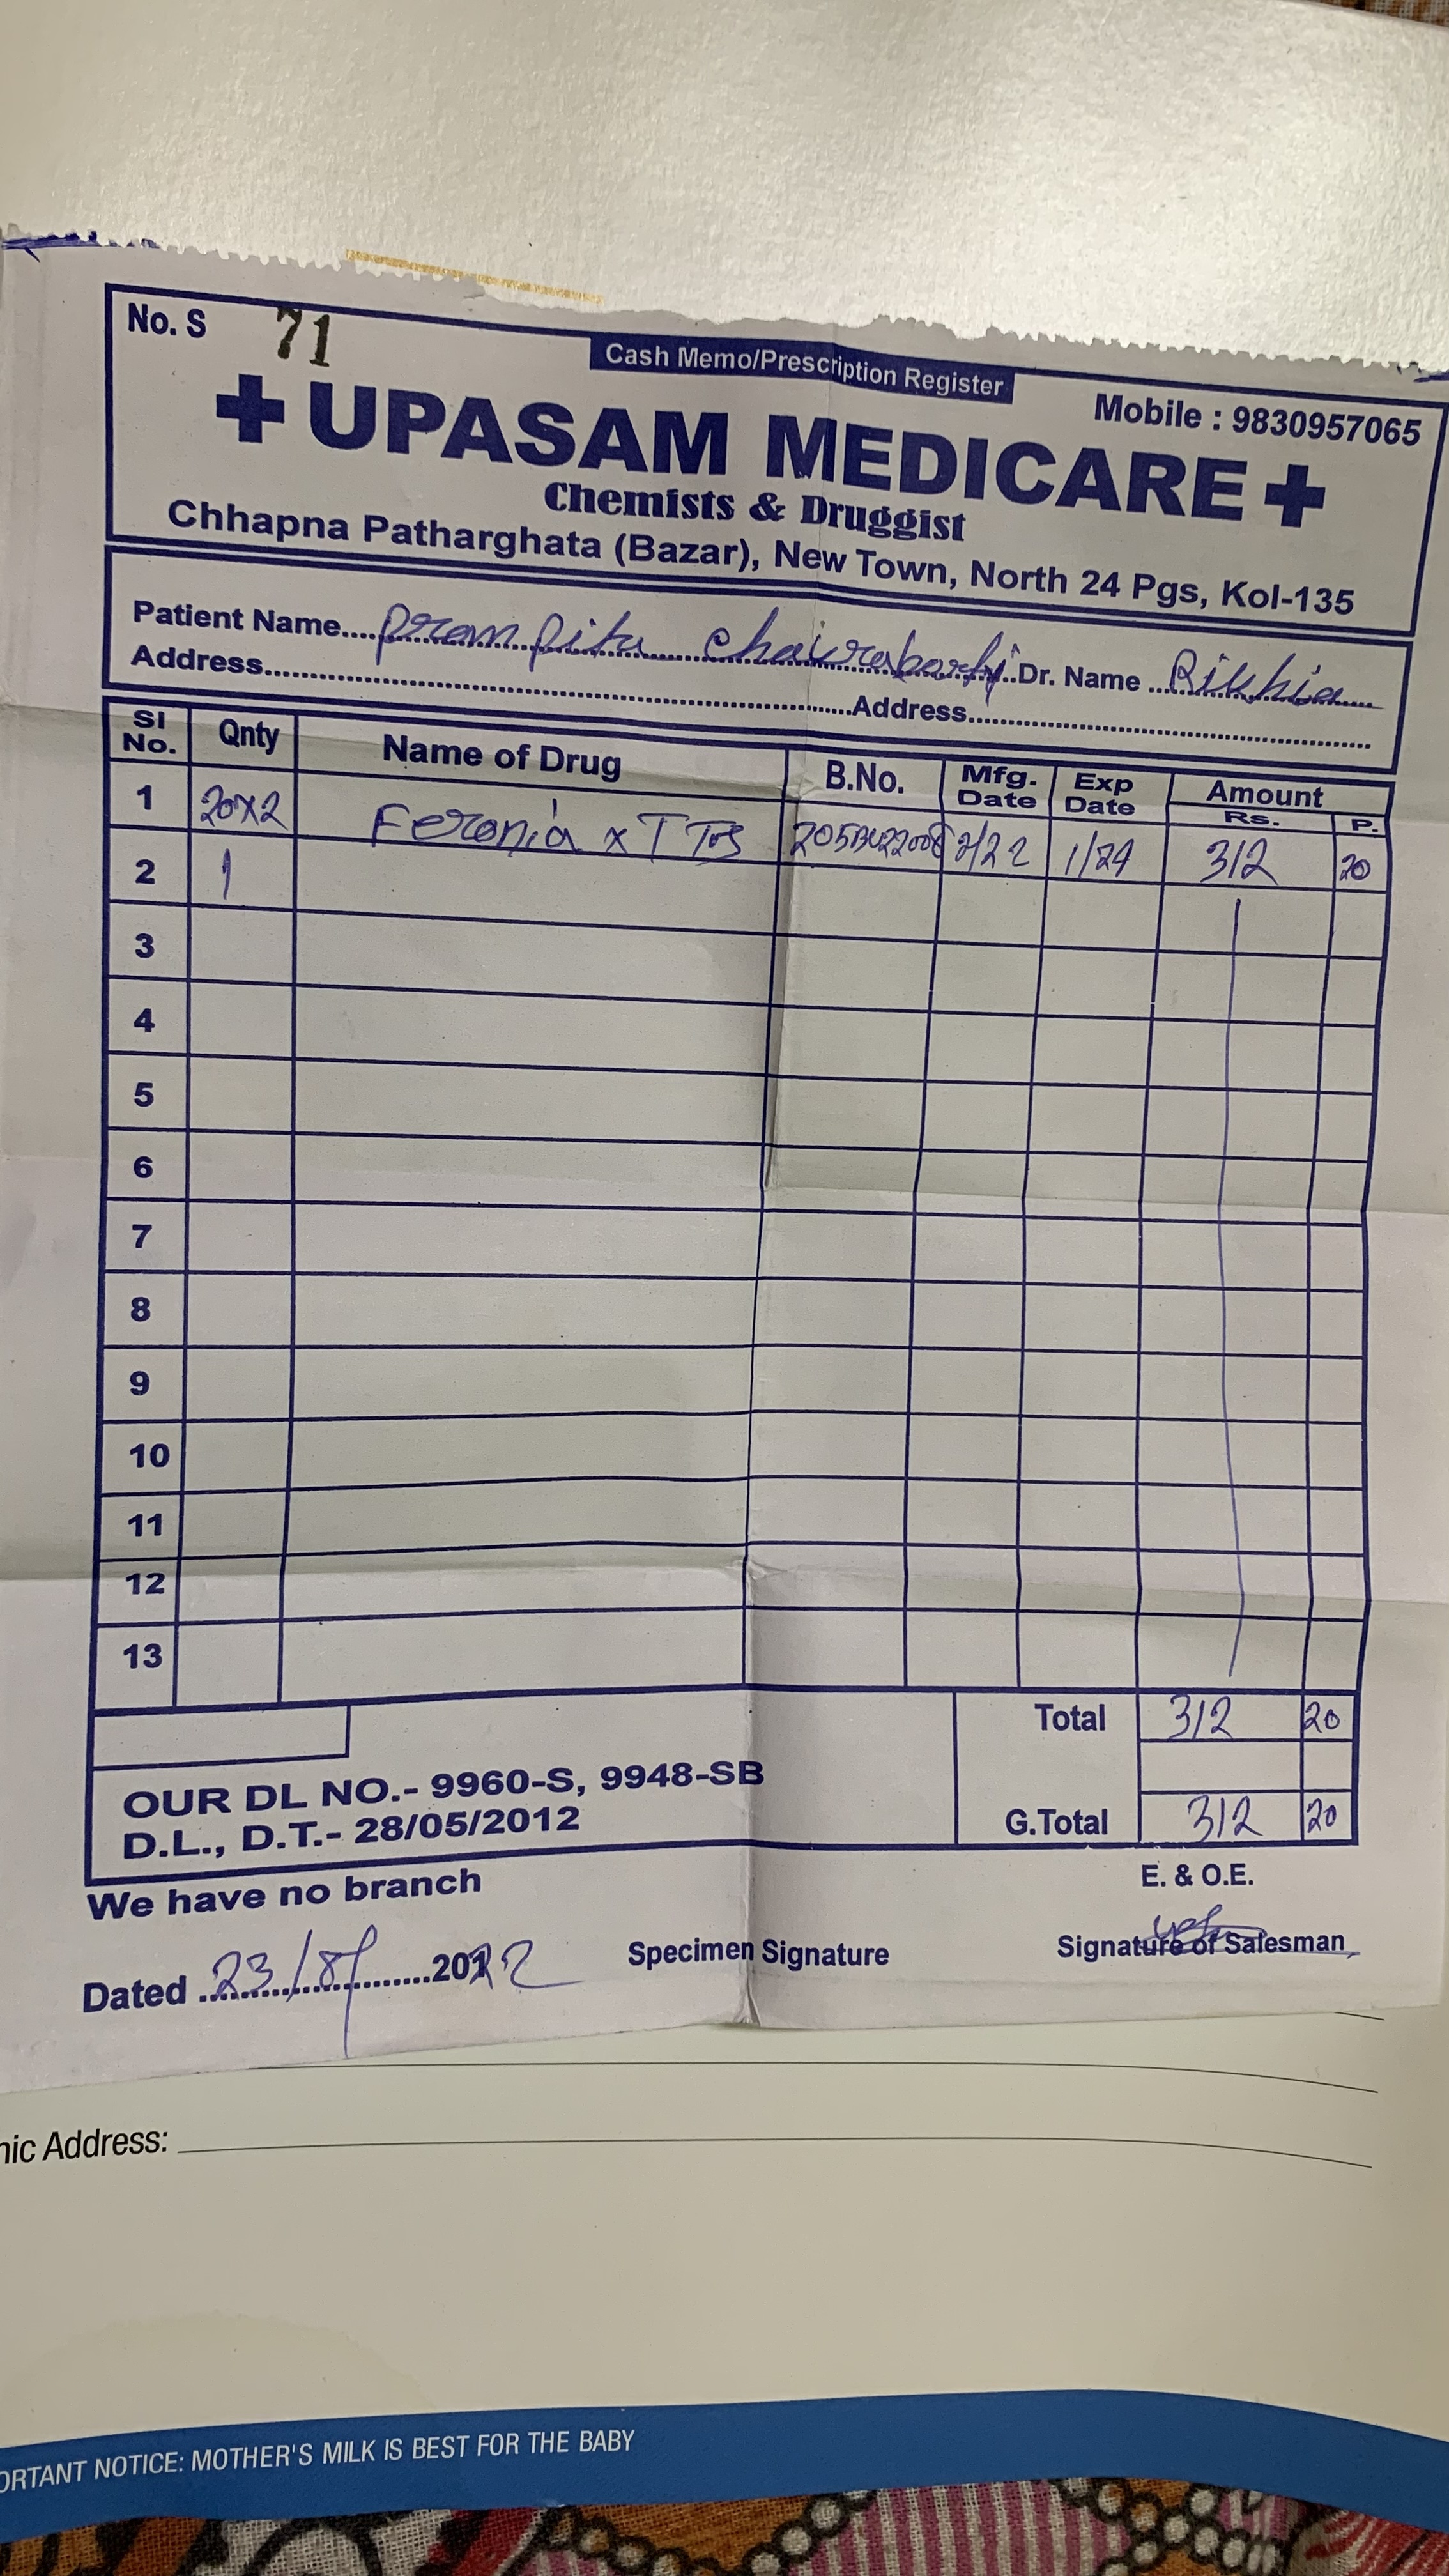 No. S 71
Cash Memo/Prescription Register
Mobile : 9830957065
UPASAM MEDICARE
Chemists & Druggist
Chhapna Patharghata (Bazar), New Town, North 24 Pgs, Kol-135
Patient Name.... Dr. Name ... Rikhia
Address.... Address....
Sl No. Qnty Name of Drug B.No. Mfg. Date Exp Date Amount Rs. P.
1 20x2 Feronia x T 2/22 1/24 312 20
2
3
4
5
6
7
8
9
10
11
12
13
Total 312 20
OUR DL NO.- 9960-S, 9948-SB
D.L., D.T.- 28/05/2012
G.Total 312 20
We have no branch
E. & O.E.
Dated 23/8/2022 Specimen Signature Signature of Salesman
nic Address:
ORTANT NOTICE: MOTHER'S MILK IS BEST FOR THE BABY